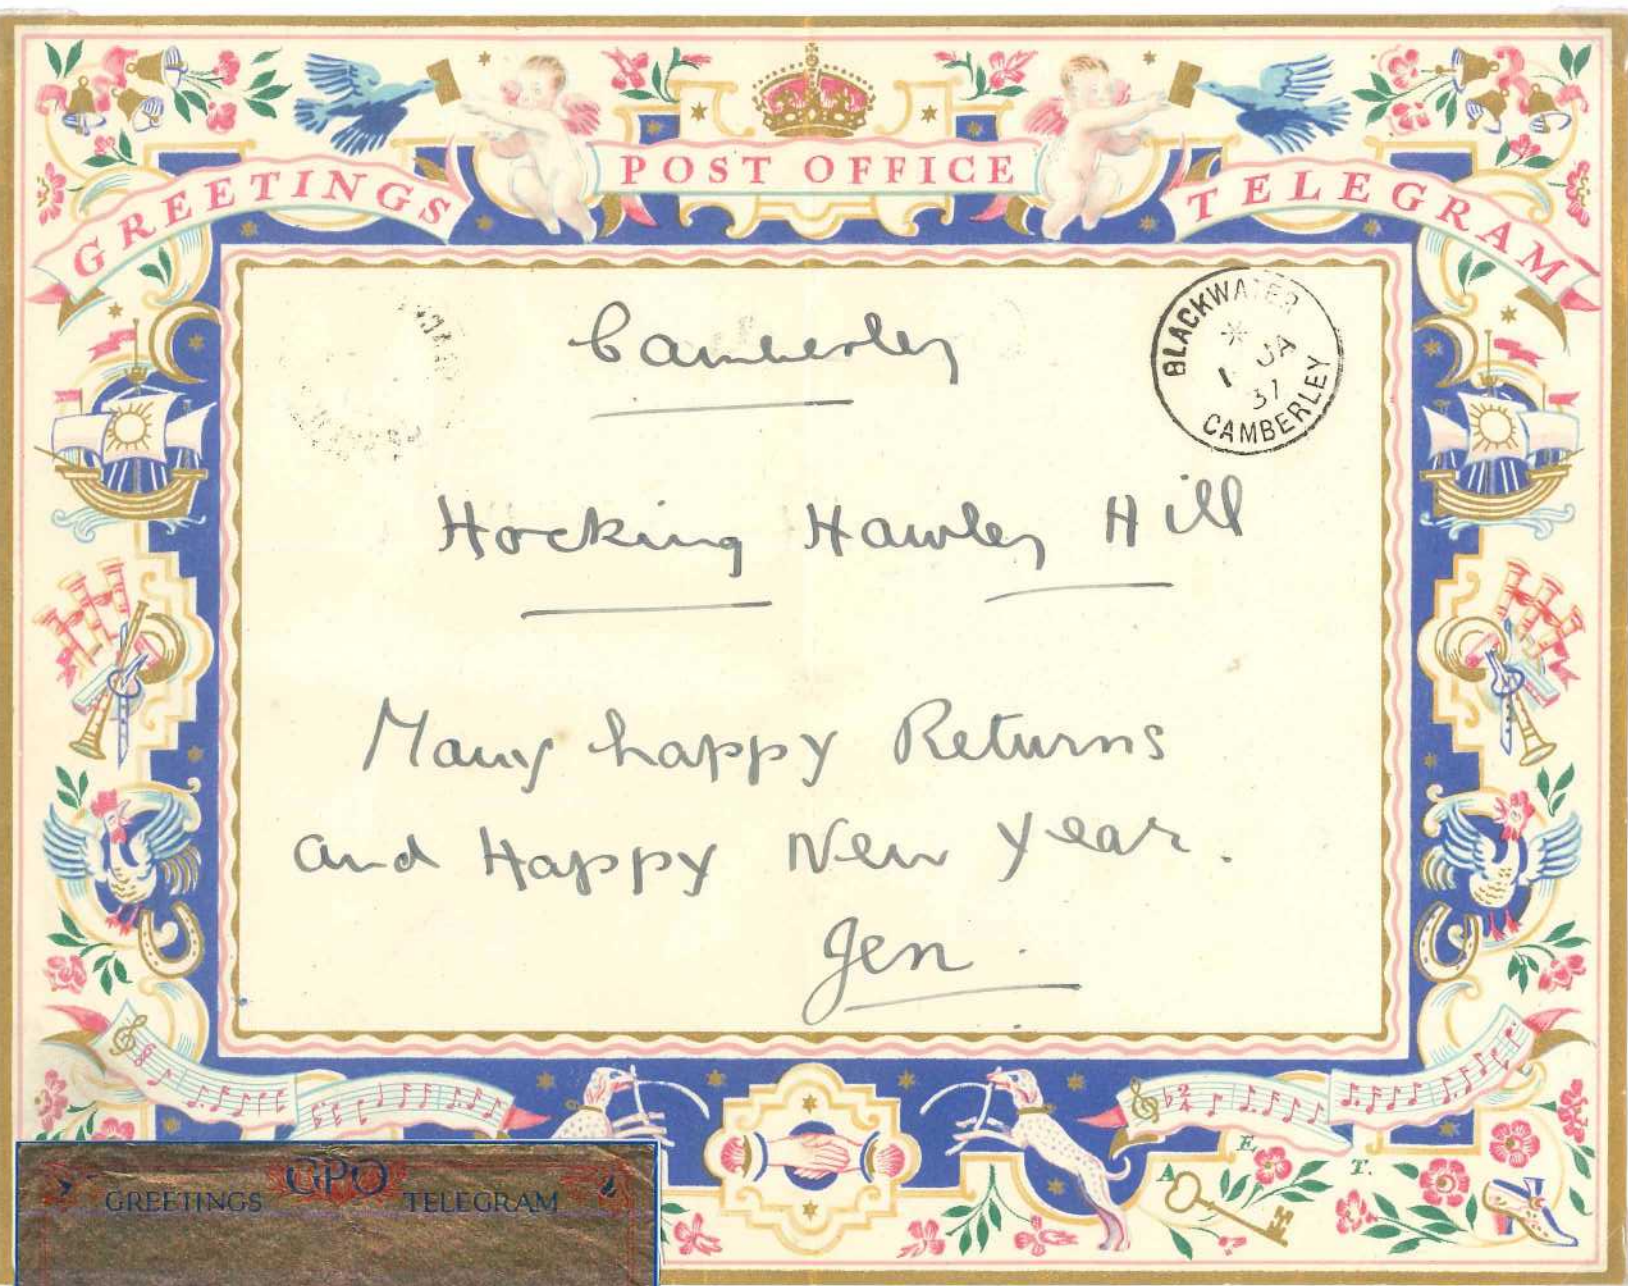 GREETINGS POST OFFICE TELEGRAM
BLACKWATER
1 JA
37
CAMBERLEY
Camberley
Hocking Hawley Hill
Many happy Returns
and Happy New Year.
Jen.
A E. T.
GREETINGS GPO TELEGRAM